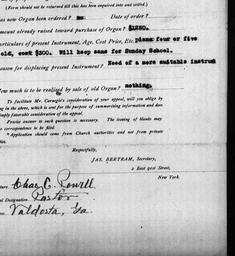 (Form should not be returned till this has been inquired into and settled.)
as new Organ been ordered? No Date of order?
mount already raised toward purchase of Organ? $1250.
articulars of present Instrument, Age, Cost Price, Etc. piano: four or five
old, cost $300. Will keep same for Sunday School.
eason for displacing present Instrument? Need of a more suitable instrum
How much is to be realised by sale of old Organ? nothing.
To facilitate Mr. Carnegie's consideration of your appeal, will you oblige by
ing in the above, which is sent for the purpose of summarizing information and
mply favorable consideration of the appeal.
Precise answer to each question is necessary. The issuing of blanks may
correspondence to be filed.
" Application should come from Church authorities and not from private
Respectfully,
JAS. BERTRAM, Secretary,
2 East 91st Street,
New York.
ture. Chas. C. Powell
l Designation. Pastor
Valdosta, Ga.